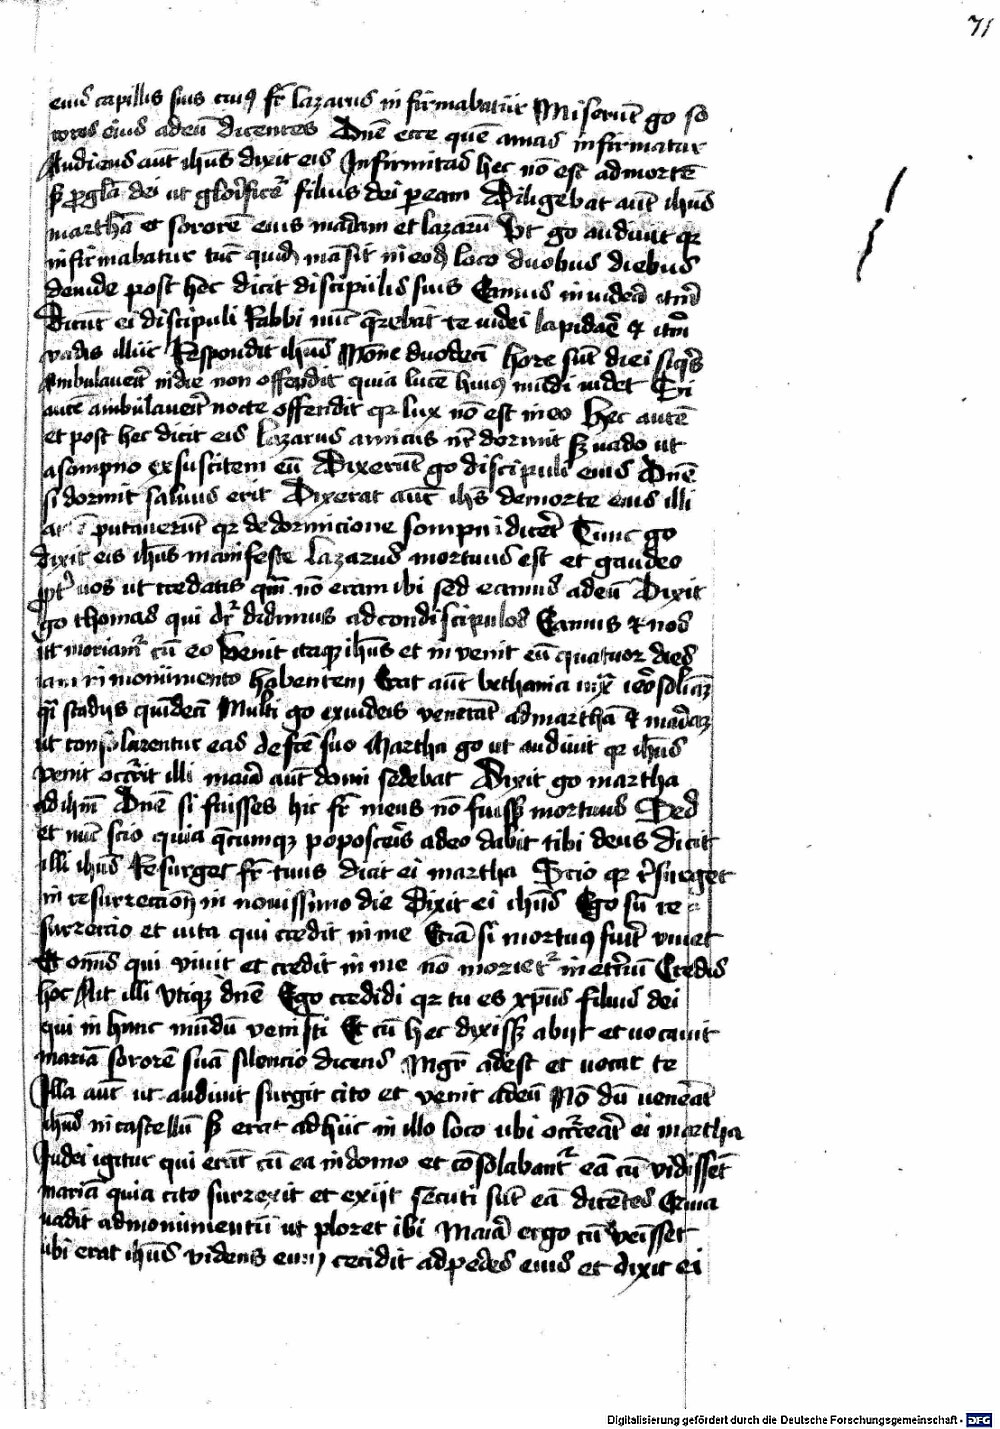 71
eius capillis suis cuiꝰ fr̄ lazarus infirmabatur Miserūt g̊o so
rores eius adeū dicentes Dn̄e ecce quē amas infirmatur
Audiens aūt ih̄us dixit eis Infirmitas hec nō est ad mortē
sꝫ ꝓ gl̄a dei ut glorificet᷑ filius dei ꝑ eam Diligebat aūt ih̄us
marthā et sororē eius mariam et lazarū Vt g̊o audiuit qꝛ
infirmabatur tūc quidē māsit in eodē loco duobus diebus
deinde post hec dicit discipulis suis Eamus in iudeā itm̄
Dicūt ei discipuli Rabbi nūc q̄rebāt te iudei lapidaē ⁊ itm̄
vadis illuc Respondit ih̄us Nōne duodecī hore sūt diei siqͥs
Ambulauerit in die non offendit quia lucē huiꝰ mūdi uidet Si
autē ambulauerit nocte offendit qꝛ lux nō est in eo Hec autē
et post hec dicit eis Lazarus amicus nr̄ dormit sꝫ uado ut
a sompno exsuscitem eū Dixerūt g̊o discipuli eius Dn̄e
si dormit saluus erit Dixerat aūt ih̄s de morte eius illi
putauerūt qꝛ de dormicione sompni dicēt Tunc g̊o
dixit eis ih̄us manifeste Lazarus mortuus est et gaudeo
ꝓpt᷑ uos ut credatis qm̄ nō eram ibi sed eamus adeū Dixit
g̊o thomas qui dr̄ didimus ad condiscipulos Eamus ⁊ nos
ut moriam᷑ cū eo Venit itaqꝫ ih̄us et inuenit eū quatuor dies
iam in monumento habentem Erat aūt bethania iuxͣ ierosolimā
qͣi stadijs quīdecī Multi g̊o ex iudeis venerāt ad marthā ⁊ mariā
ut consolarentur eas de fr̄e suo Martha g̊o ut audiuit qꝛ ih̄us
venit occrrit illi maria aūt domi sedebat Dixit g̊o martha
ad ihm̄ Dn̄e si fuisses hic fr̄ meus nō fuissꝫ mortuus Sed
et nūc scio quia q̄cumqꝫ poposceris adeo dabit tibi deus dicit
illi ih̄us Resurget fr̄ tuus dicit ei martha Scio qꝛ r̄surget
in resurrectiōe in nouissimo die Dixit ei ih̄us Ego sū re
surrectio et uita qui credit in me Eciā si mortuꝰ fuīt viuet
Et om̄is qui viuit et credit in me nō moriet᷑ in et̄nū Credis
hoc Ait illi Vtiqꝫ dn̄e Ego credidi qꝛ tu es xp̄us filius dei
qui in hunc mūdū venisti Et cū hec dixissꝫ abijt et uocauit
mariā sororē suā silencio dicens Mgr̄ adest et uocat te
Illa aūt ut audiuit surgit cito et venit adeū Nō dū uenerāt
ih̄us in castellū sꝫ erat adhuc in illo loco ubi occ̄reāt ei martha
Iudei igitur qui erāt cū ea in domo et cōsolabant᷑ eā cū vidissēt
mariā quia cito surrexit et exijt secuti sūt eā dicētes Quia
uadit ad monumentū ut ploret ibi Maria ergo cū veīsset
ubi erat ih̄us videns eum cecidit ad pedes eius et dixit ei
Digitalisierung gefördert durch die Deutsche Forschungsgemeinschaft - DFG